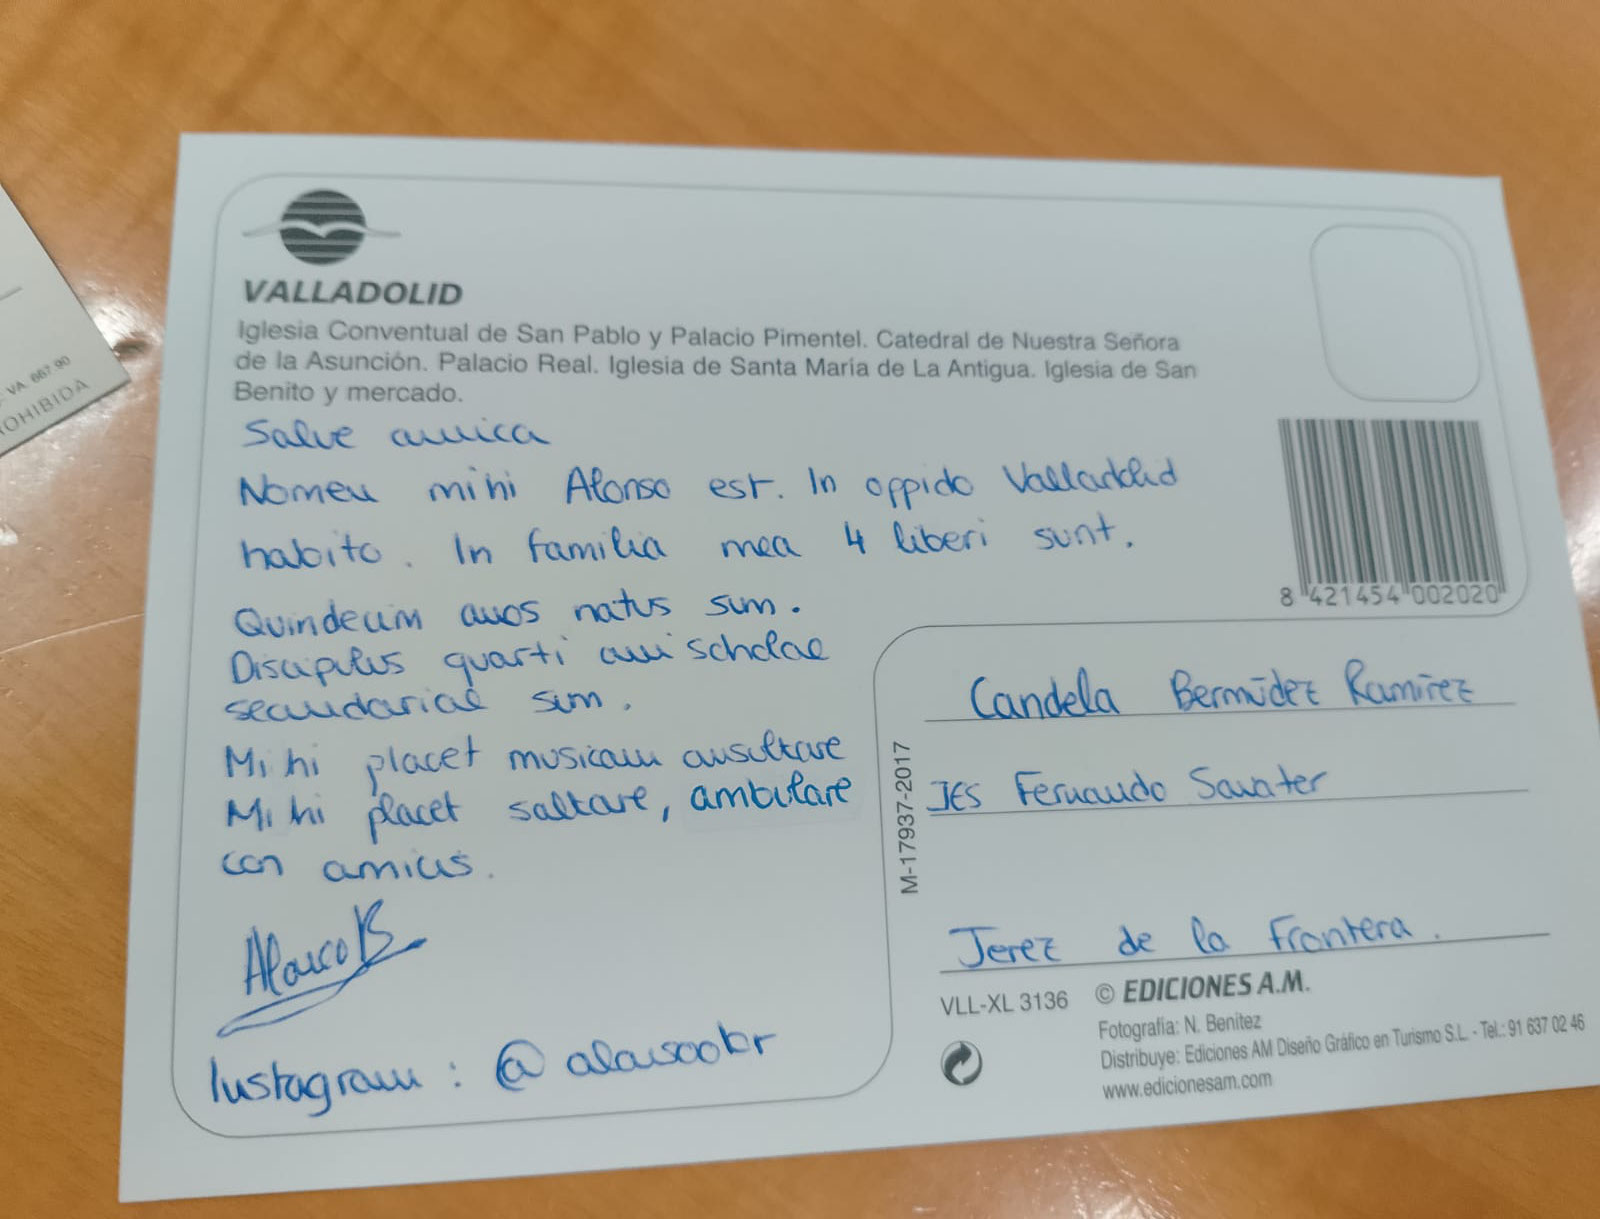 VALLADOLID
Iglesia Conventual de San Pablo y Palacio Pimentel. Catedral de Nuestra Señora
de la Asunción. Palacio Real. Iglesia de Santa María de La Antigua. Iglesia de San
Benito y mercado.
Salve amica
Nomen mihi Alonso est. In oppido Valladolid
habito. In familia mea 4 liberi sunt.
Quindecim annos natus sum.
Discipulus quarti anni scholae
secundariae sum.
Mihi placet musicam auscultare
Mihi placet saltare, ambulare
con amicis.
Instagram: @
8 421454 002020
Candela Bermúdez Ramírez
IES Fernando Savater
Jerez de la Frontera.
M-17937-2017
VLL-XL 3136
© EDICIONES A.M.
Fotografía: N. Benítez
Distribuye: Ediciones AM Diseño Gráfico en Turismo S.L. - Tel.: 91 637 02 46
www.edicionesam.com
VA 667.90
OHIBIDA